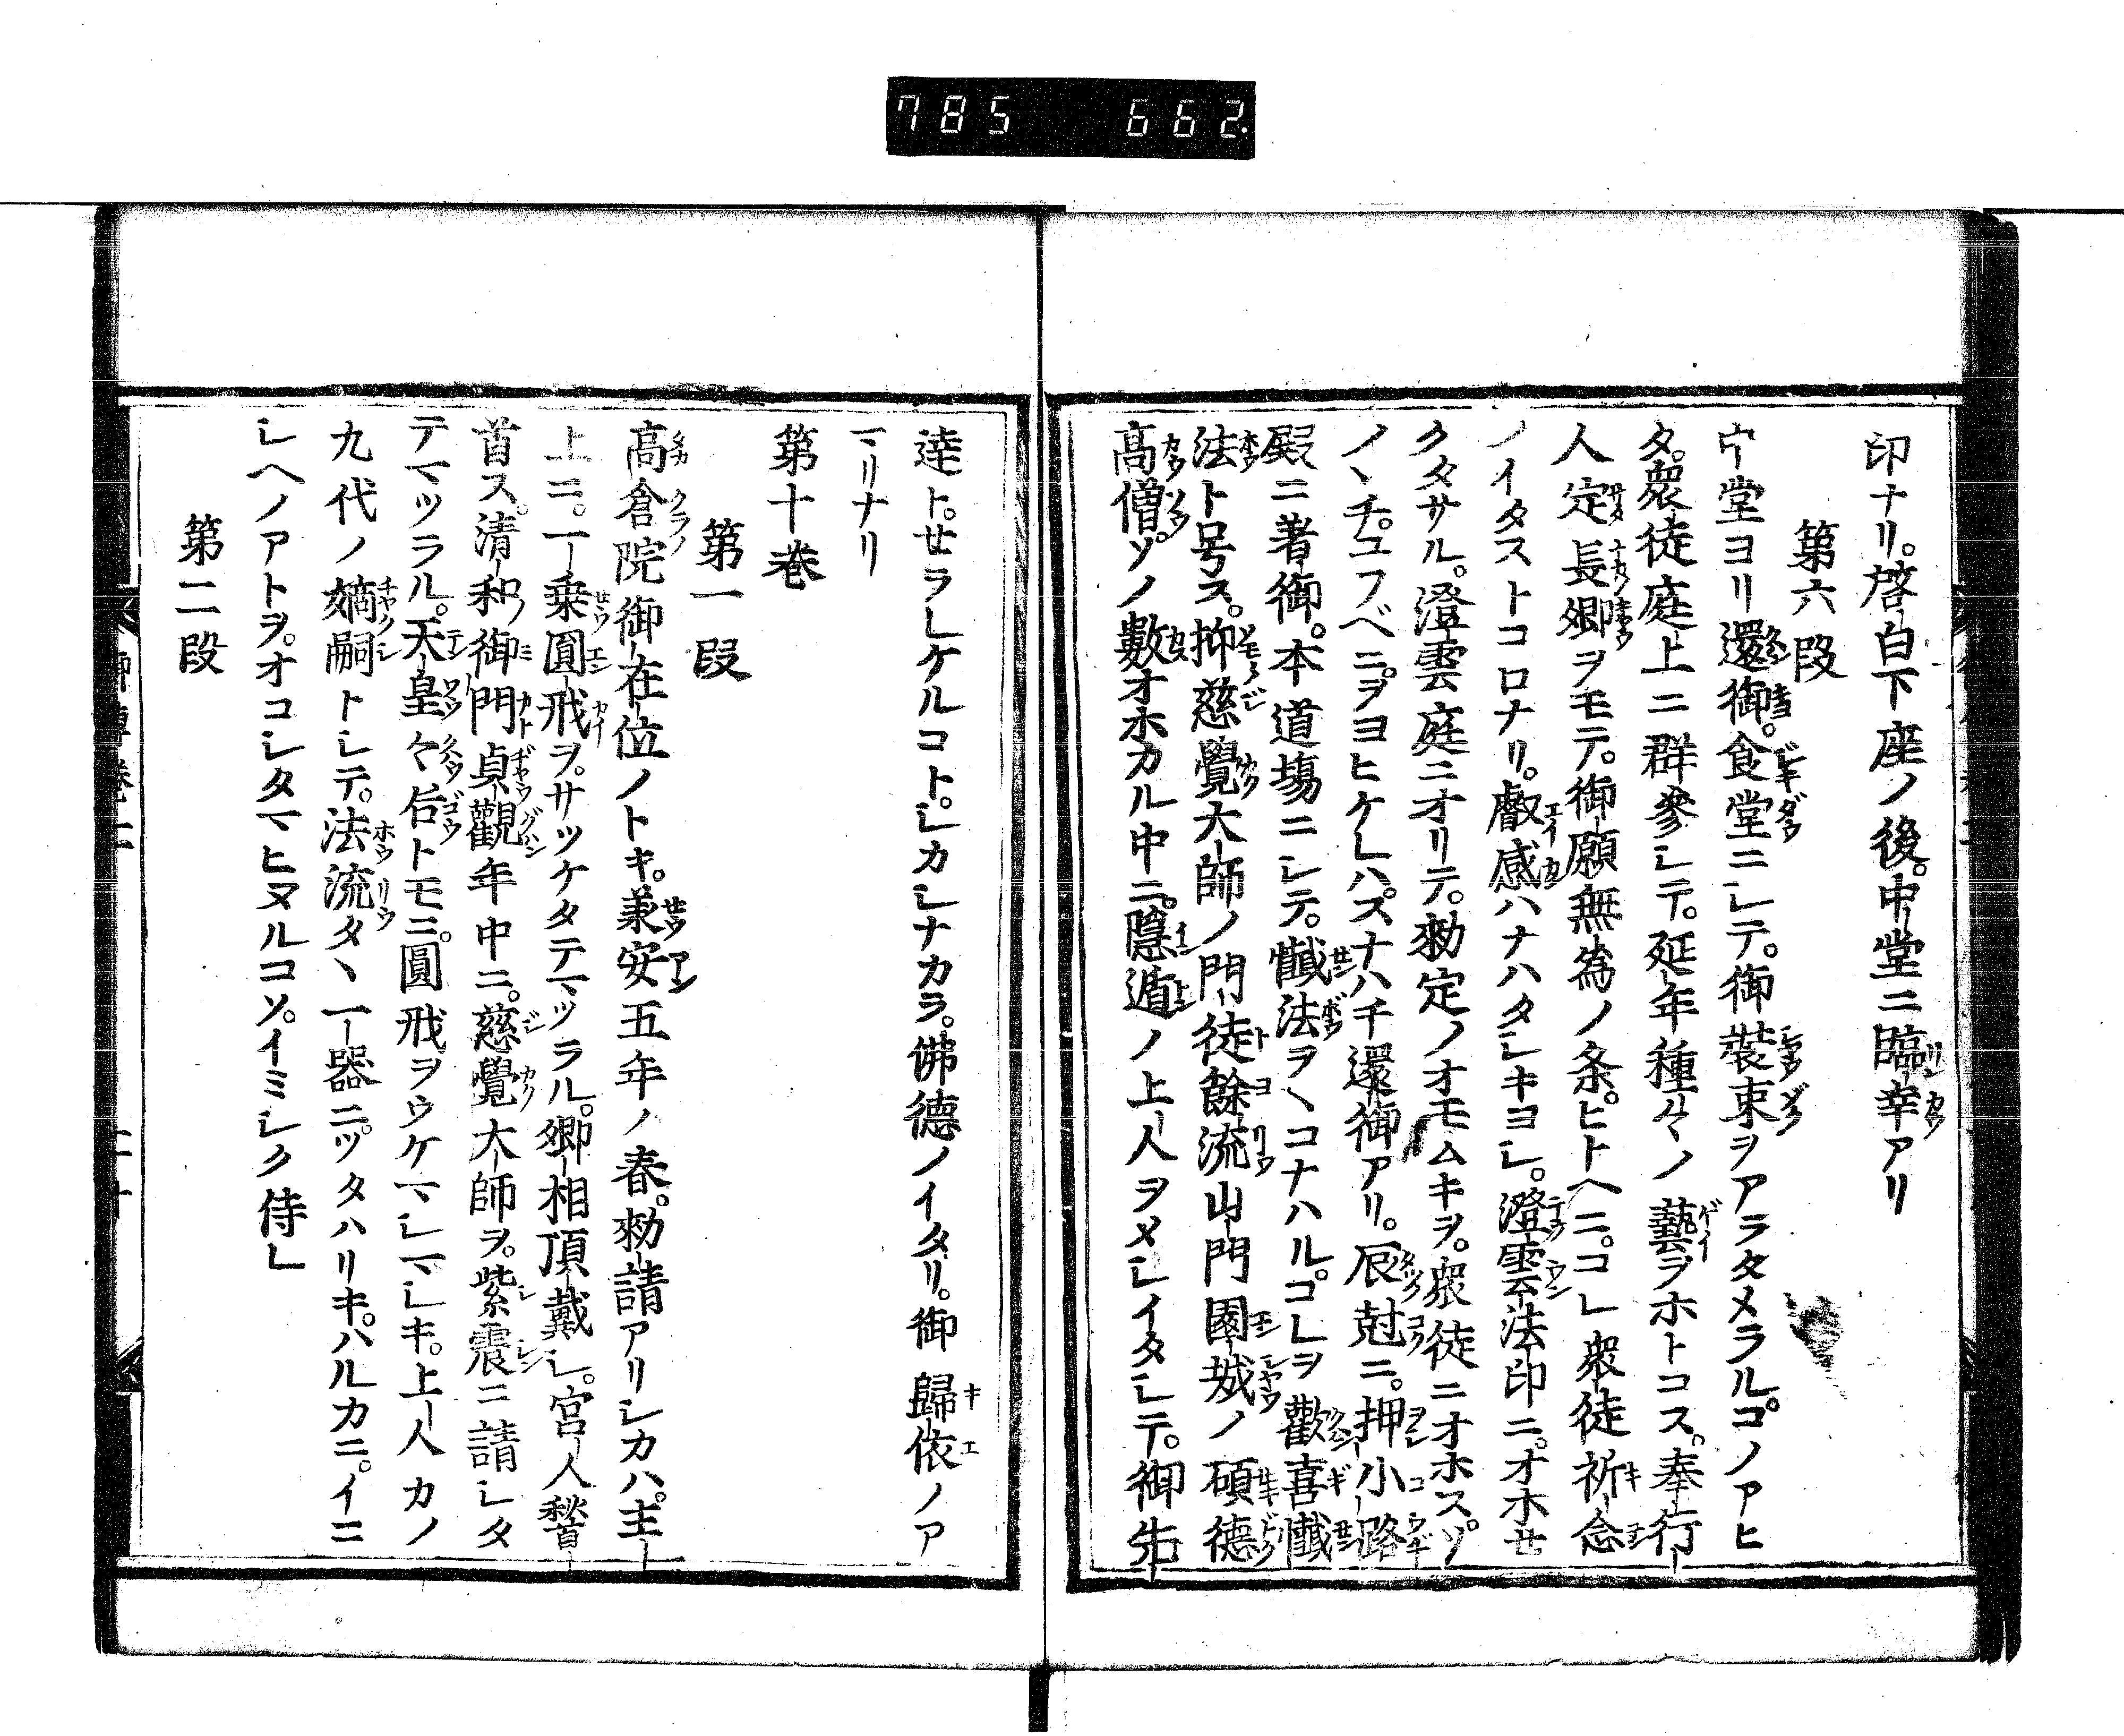 785 662.
印ナリ。啓白下座ノ後。中堂ニ臨幸アリ
第六段
中堂ヨリ還御。食堂ニシテ。御裝束ヲアラタメラル。コノアヒ
タ。衆徒庭上ニ群參シテ。延年種々ノ藝ヲホトコス。奉行
人定長卿ヲモテ。御願無為ノ条。ヒトヘニ。コレ衆徒祈念
ノイタストコロナリ。叡感ハナハタシキヨシ。澄雲法印ニ。オホセ
クタサル。澄雲庭ニオリテ。勅定ノオモムキヲ。衆徒ニオホス。ソ
ノヽチ。ユフベニ。ヲヨヒケレハ。スナハチ還御アリ。辰尅ニ。押小路
殿ニ著御。本道場ニシテ。懺法ヲヽコナハル。コレヲ歡喜懺
法ト号ス。抑慈覺大師ノ門徒餘流山門園城ノ碩德
高僧。ソノ數オホカル中ニ。隱遁ノ上人ヲメシイタシテ。御先
達ト。セラレケルコト。シカシナカラ。佛德ノイタリ。御歸依ノア
マリナリ
第十卷
第一段
高倉院御在位ノトキ。兼安五年ノ春。勅請アリシカハ。主
上ニ。一乗圓戒ヲ。サツケタテマツラル。卿相頂戴シ。宮人稽
首ス。清和御門貞觀年中ニ。慈覺大師ヲ。紫震ニ請シタ
テマツラル。天皇々后トモニ。圓戒ヲウケマシマシキ。上人カノ
九代ノ嫡嗣トシテ。法流タヽ一器ニ。ツタハリキ。ハルカニ。イニ
シヘノアトヲ。オコシタマヒヌルコソ。イミシク侍レ
第二段